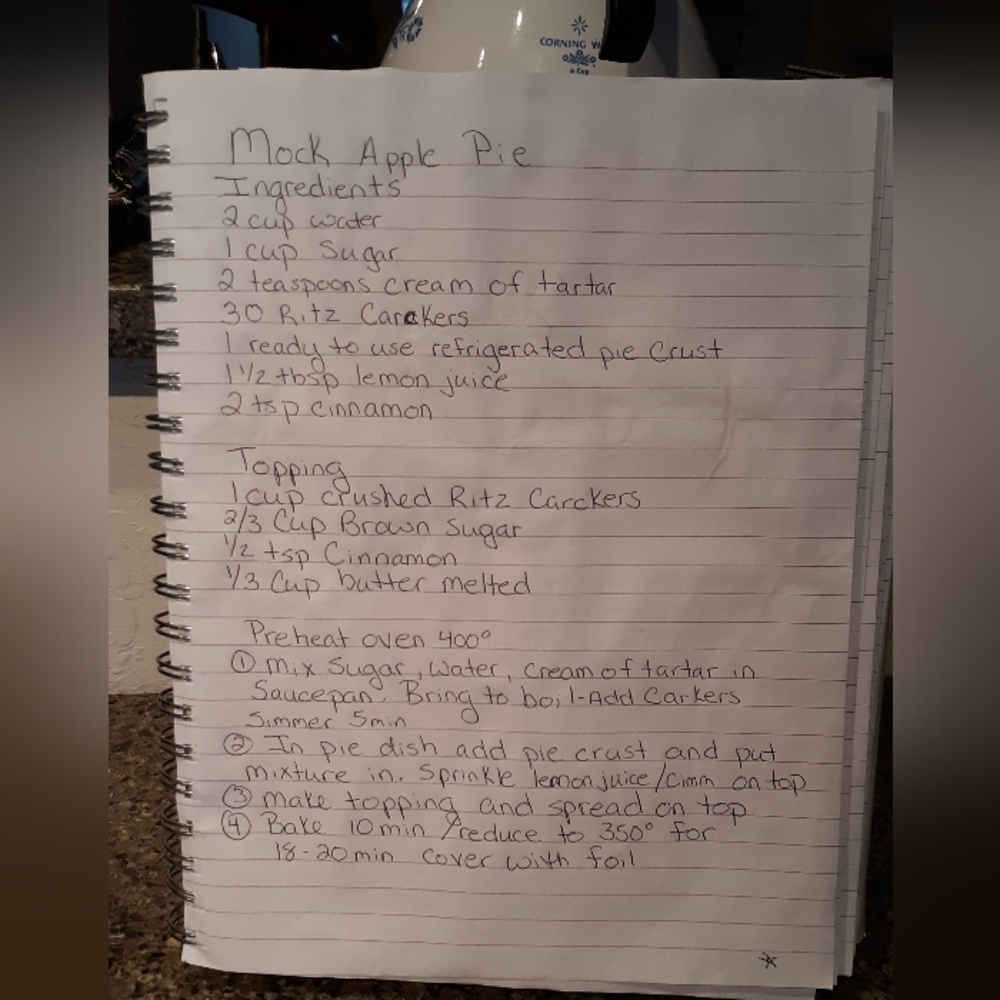 CORNING W
6 CUP
Mock Apple Pie
Ingredients
2 cup water
1 cup Sugar
2 teaspoons cream of tartar
30 Ritz Carckers
1 ready to use refrigerated pie Crust
1 1/2 tbsp lemon juice
2 tsp cinnamon
Topping
1 cup crushed Ritz Carckers
2/3 Cup Brown Sugar
1/2 tsp Cinnamon
1/3 Cup butter melted
Preheat oven 400°
① Mix Sugar, Water, Cream of tartar in
Saucepan. Bring to boil-Add Carkers
Simmer 5min
② In pie dish add pie crust and put
mixture in. Sprinkle lemon juice/Cimm on top
③ Make topping and spread on top
④ Bake 10min /reduce to 350° for
18-20min cover with foil